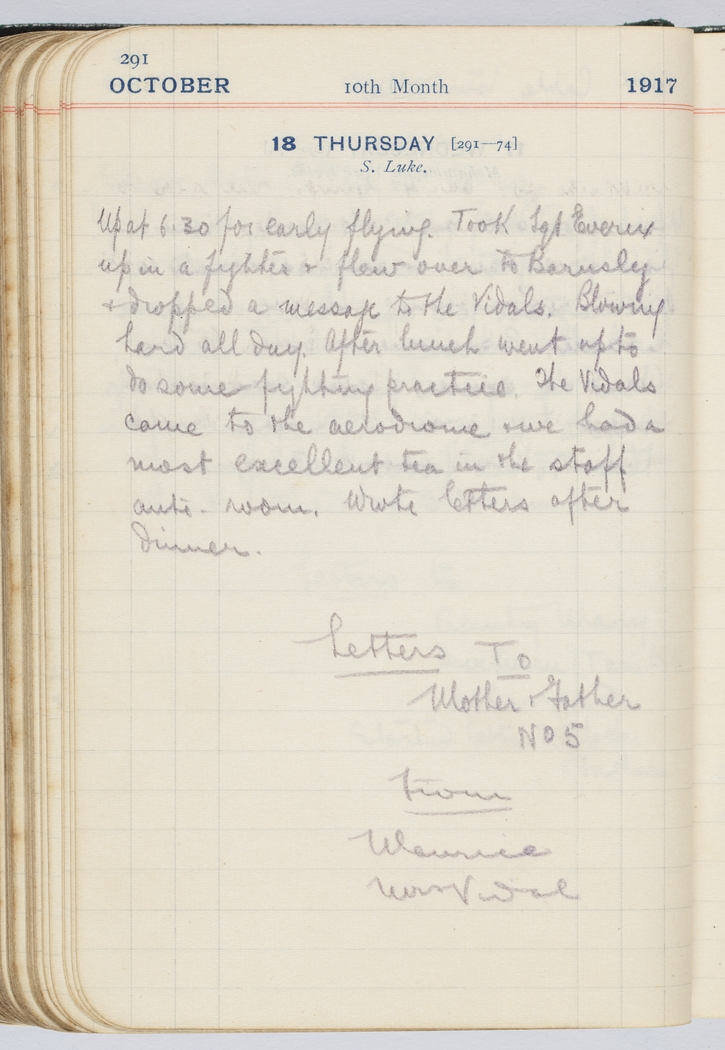 291
OCTOBER 10th Month 1917
18 THURSDAY [291—74]
S. Luke.
Up at 6.30 for early flying. Took Sgt
up in a fighter & flew over to Barnsley
& dropped a message to the Vidals. Blowing
hard all day. After lunch went up to
do some fighting practice. The Vidals
came to the aerodrome & we had a
most excellent tea in the staff
anti-room. Wrote letters after
dinner.
Letters To
Mother & Father
No 5
From
Maurice
Mrs Vidal